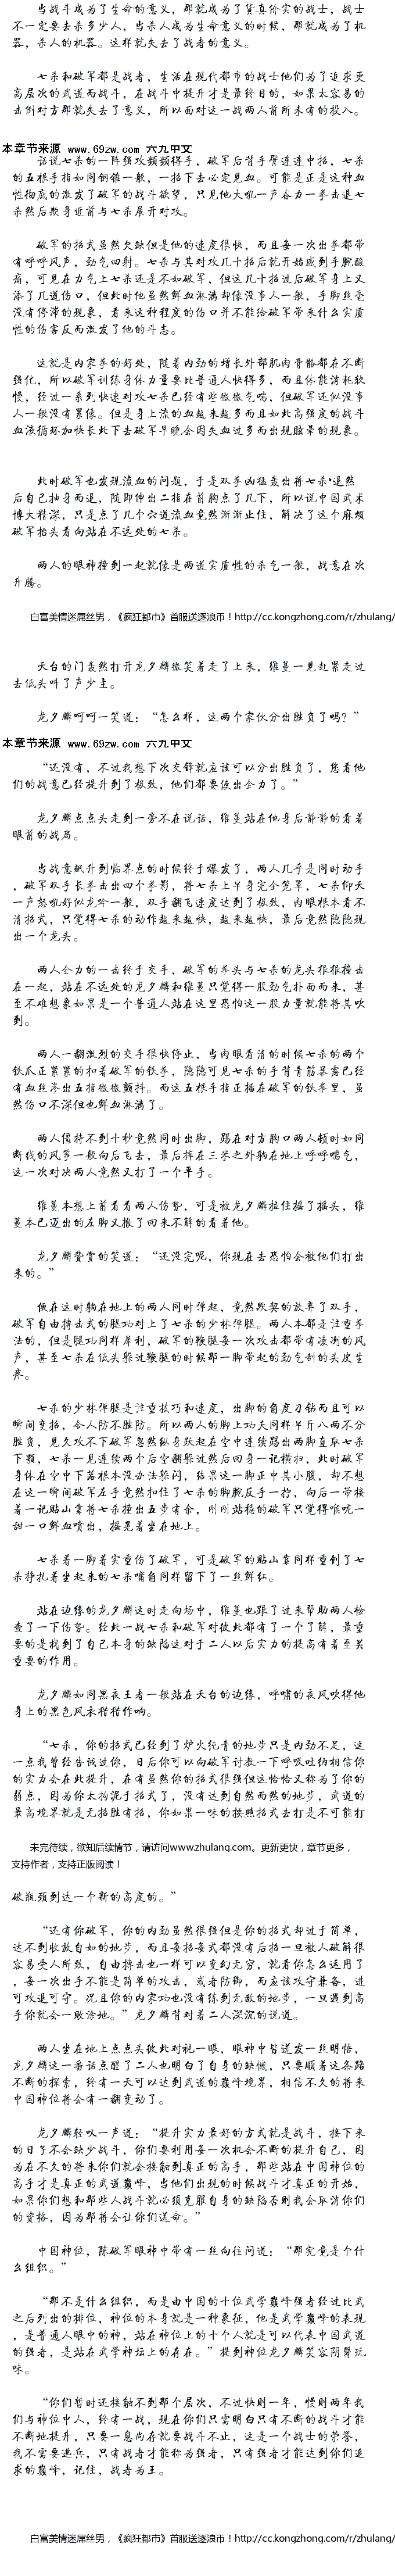 当战斗成为了生命的意义，那就成为了货真价实的战士，战士
不一定要去杀多少人，当杀人成为生命意义的时候，那就成为了机
器，杀人的机器。这样就失去了战者的意义。
七杀和破军都是战者，生活在现代都市的战士他们为了追求更
高层次的武道而战斗，在战斗中提升才是最终目的，如果太容易的
击倒对方那就失去了意义，所以面对这一战两人前所未有的投入。
本章节来源 www.69zw.com 六九中文
话说七杀的一阵强攻频频得手，破军后背手臂连连中招，七杀
的五根手指如同钢锥一般，一招下去必定见血。可能是正是这种血
性彻底的激发了破军的战斗欲望，只见他大吼一声奋力一拳击退七
杀然后欺身近前与七杀展开对攻。
破军的招式虽然欠缺但是他的速度很快，而且每一次出拳都带
有呼呼风声，劲气四射。七杀与其对攻几十招后就开始感到手腕酸
痛，可见在力气上七杀还是不如破军，但这几十招过后破军身上又
添了几道伤口，但此时他虽然鲜血淋漓却像没事人一般，手脚丝毫
没有停滞的现象，看来这种程度的伤口并不能给破军带来什么实质
性的伤害反而激发了他的斗志。
这就是内家拳的好处，随着内劲的增长外部肌肉骨骼都在不断
强化，所以破军训练身体力量要比普通人快得多，而且体能消耗较
慢，经过一系列快速对攻七杀已经有些微微气喘，但破军还似没事
人一般没有累像。但是身上流的血越来越多而且如此高强度的战斗
血液循环加快长此下去破军早晚会因失血过多而出现眩晕的现象。
此时破军也发现流血的问题，于是双拳凶猛轰出将七杀·退然
后自己抽身而退，随即伸出二指在前胸点了几下，所以说中国武术
博大精深，只是点了几个穴道流血竟然渐渐止住，解决了这个麻烦
破军抬头看向站在不远处的七杀。
两人的眼神撞到一起就像是两道实质性的杀气一般，战意在次
升腾。
白富美情迷屌丝男，《疯狂都市》首服送逐浪币！http://cc.kongzhong.com/r/zhulang/
天台的门轰然打开龙夕麟微笑着走了上来，雅蔓一见赶紧走过
去低头叫了声少主。
龙夕麟呵呵一笑道：“怎么样，这两个家伙分出胜负了吗？”
本章节来源 www.69zw.com 六九中文
“还没有，不过我想下次交锋就应该可以分出胜负了，您看他
们的战意已经提升到了极致，他们都要使出全力了。”
龙夕麟点点头走到一旁不在说话，雅蔓站在他身后静静的看着
眼前的战局。
当战意飙升到临界点的时候终于爆发了，两人几乎是同时动手
，破军双手长拳击出四个拳影，将七杀上半身完全笼罩，七杀仰天
一声怒吼好似龙吟一般，双手翻飞速度达到了极致，肉眼根本看不
清招式，只觉得七杀的动作越来越快，越来越快，最后竟然隐隐现
出一个龙头。
两人全力的一击终于交手，破军的拳头与七杀的龙头狠狠撞击
在一起，站在不远处的龙夕麟和雅蔓只觉得一股劲气扑面而来，甚
至不难想象如果是一个普通人站在这里恐怕这一股力量就能将其吹
到。
两人一翻激烈的交手很快停止，当肉眼看清的时候七杀的两个
铁爪正紧紧的扣着破军的铁拳，隐隐可见七杀的手背青筋暴露已经
有血丝渗出五指微微颤抖。而这五根手指正插在破军的铁拳里，虽
然伤口不深但也鲜血淋漓了。
两人僵持不到十秒竟然同时出脚，踢在对方胸口两人顿时如同
断线的风筝一般向后飞去，最后摔在三米之外躺在地上呼呼喘气，
这一次对决两人竟然又打了一个平手。
雅蔓本想上前看看两人伤势，可是被龙夕麟拉住摇了摇头，雅
蔓本已迈出的左脚又撤了回来不解的看着他。
龙夕麟赞赏的笑道：“还没完呢，你现在去恐怕会被他们打出
来的。”
便在这时躺在地上的两人同时弹起，竟然默契的放弃了双手，
破军自由搏击式的腿功对上了七杀的少林弹腿。两人本都是注重拳
法的，但是腿功同样犀利，破军的鞭腿每一次攻击都带有凌冽的风
声，甚至七杀在低头躲过鞭腿的时候那一脚带起的劲气刮的头皮生
疼。
七杀的少林弹腿是注重技巧和速度，出脚的角度刁钻而且可以
瞬间变招，令人防不胜防。所以两人的脚上功夫同样半斤八两不分
胜负，见久攻不下破军忽然纵身跃起在空中连续踢出两脚直取七杀
下颚，七杀一见连续两个后空翻躲过然后回身一记横扫，此时破军
身体在空中下落根本没办法躲闪，结果这一脚正中其小腹，却不想
在这一瞬间破军左手竟然扣住了七杀的脚腕反手一拧，向后一带接
着一记贴山靠将七杀撞出五步有余，刚刚站稳的破军只觉得喉咙一
甜一口鲜血喷出，摇晃着坐在地上。
七杀着一脚着实重伤了破军，可是破军的贴山靠同样重创了七
杀挣扎着坐起来的七杀嘴角同样留下了一丝鲜红。
站在边缘的龙夕麟这时走向场中，雅蔓也跟了过来帮助两人检
查了一下伤势。经此一战七杀和破军对彼此都有了一个了解，最重
要的是找到了自己本身的缺陷这对于二人以后实力的提高有着至关
重要的作用。
龙夕麟如同黑夜王者一般站在天台的边缘，呼啸的夜风吹得他
身上的黑色风衣猎猎作响。
“七杀，你的招式已经到了炉火纯青的地步只是内劲不足，这
一点我曾经告诫过你，日后你可以向破军讨教一下呼吸吐纳相信你
的实力会在此提升，在有虽然你的招式很强但这恰恰又称为了你的
弱点，因为你太拘泥于招式了，没有达到自然而然的地步，武道的
最高境界就是无招胜有招，你如果一味的按照招式去打是不可能打
未完待续，欲知后续情节，请访问www.zhulang.com。更新更快，章节更多，
支持作者，支持正版阅读！
破瓶颈到达一个新的高度的。”
“还有你破军，你的内劲虽然很强但是你的招式却过于简单，
达不到收放自如的地步，而且每招每式都没有后招一旦被人破解很
容易受人所致，自由搏击也一样可以变幻无穷，就看你怎么运用了
，每一次出手不能是简单的攻击，或者防御，而应该攻守兼备，进
可攻退可守。况且你的内家功也没有练到无敌的地步，一旦遇到高
手你就会一败涂地。”龙夕麟背对着二人深沉的说道。
两人坐在地上点点头彼此对视一眼，眼神中皆迸发一丝明悟，
龙夕麟这一番话点醒了二人也明白了自身的缺憾，只要顺着这条路
不断的探索，终有一天可以达到武道的巅峰境界，相信不久的将来
中国神位将会有一翻变动了。
龙夕麟轻叹一声道：“提升实力最好的方式就是战斗，接下来
的日子不会缺少战斗，你们要利用每一次机会不断的提升自己，因
为在不久的将来你们就会接触到真正的高手，那些站在中国神位的
高手才是真正的武道巅峰，当他们出现的时候战斗才真正的开始，
如果你们想和那些人战斗就必须克服自身的缺陷否则我会取消你们
的资格，因为那将会让你们送命。”
中国神位，陈破军眼神中带有一丝向往问道：“那究竟是个什
么组织。”
“那不是什么组织，而是由中国的十位武学巅峰强者经过比武
之后列出的排位，神位的本身就是一种象征，他是武学巅峰的表现
，是普通人眼中的神，站在神位上的十个人就是可以代表中国武道
的强者，是站在武学神坛上的存在。”提到神位龙夕麟笑容阴郁玩
味。
“你们暂时还接触不到那个层次，不过快则一年，慢则两年我
们与神位中人，终有一战，现在你们只需明白只有不断的战斗才能
不断地提升，只要一息尚在就要战斗不止，这是一个战士的荣誉，
我不需要逃兵，只有战者才能称为强者，只有强者才能达到你们追
求的巅峰，记住，战者为王。
白富美情迷屌丝男，《疯狂都市》首服送逐浪币！http://cc.kongzhong.com/r/zhulang/